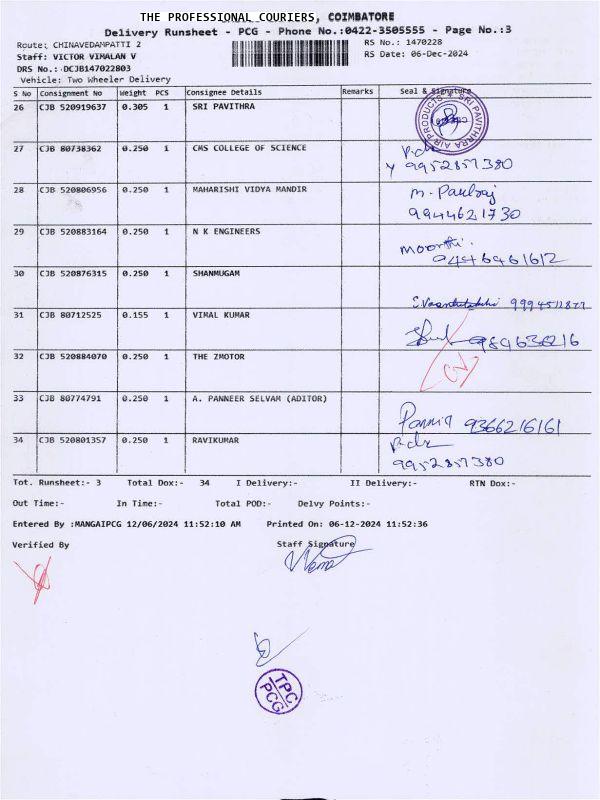 THE PROFESSIONAL COURIERS, COIMBATORE
Delivery Runsheet - PCG - Phone No.:0422-3505555 - Page No.:3
Route: CHINAVEDAMPATTI 2
RS No.: 1470228
Staff: VICTOR VIMALAN V
RS Date: 06-Dec-2024
DRS No.:-DCJB147022803
Vehicle: Two Wheeler Delivery
S No Consignment No Weight PCS Consignee Details Remarks Seal & Signature
26 CJB 520919637 0.305 1 SRI PAVITHRA
SRI PAVITHRA AIR PRODUCTS
27 CJB 80738362 0.250 1 CMS COLLEGE OF SCIENCE
9952857380
28 CJB 520806956 0.250 1 MAHARISHI VIDYA MANDIR M. Paulraj
9944621730
29 CJB 520883164 0.250 1 N K ENGINEERS
Moorthi.
30 CJB 520876315 0.250 1 SHANMUGAM
31 CJB 80712525 0.155 1 VIMAL KUMAR
32 CJB 520884070 0.250 1 THE ZMOTOR
33 CJB 80774791 0.250 1 A. PANNEER SELVAM (ADITOR)
9366216161
34 CJB 520801357 0.250 1 RAVIKUMAR
9952857380
Tot. Runsheet:- 3 Total Dox:- 34 I Delivery:- II Delivery:- RTN Dox:-
Out Time:- In Time:- Total POD:- Delvy Points:-
Entered By :MANGAIPCG 12/06/2024 11:52:10 AM Printed On: 06-12-2024 11:52:36
Verified By Staff Signature
TPC
PCG